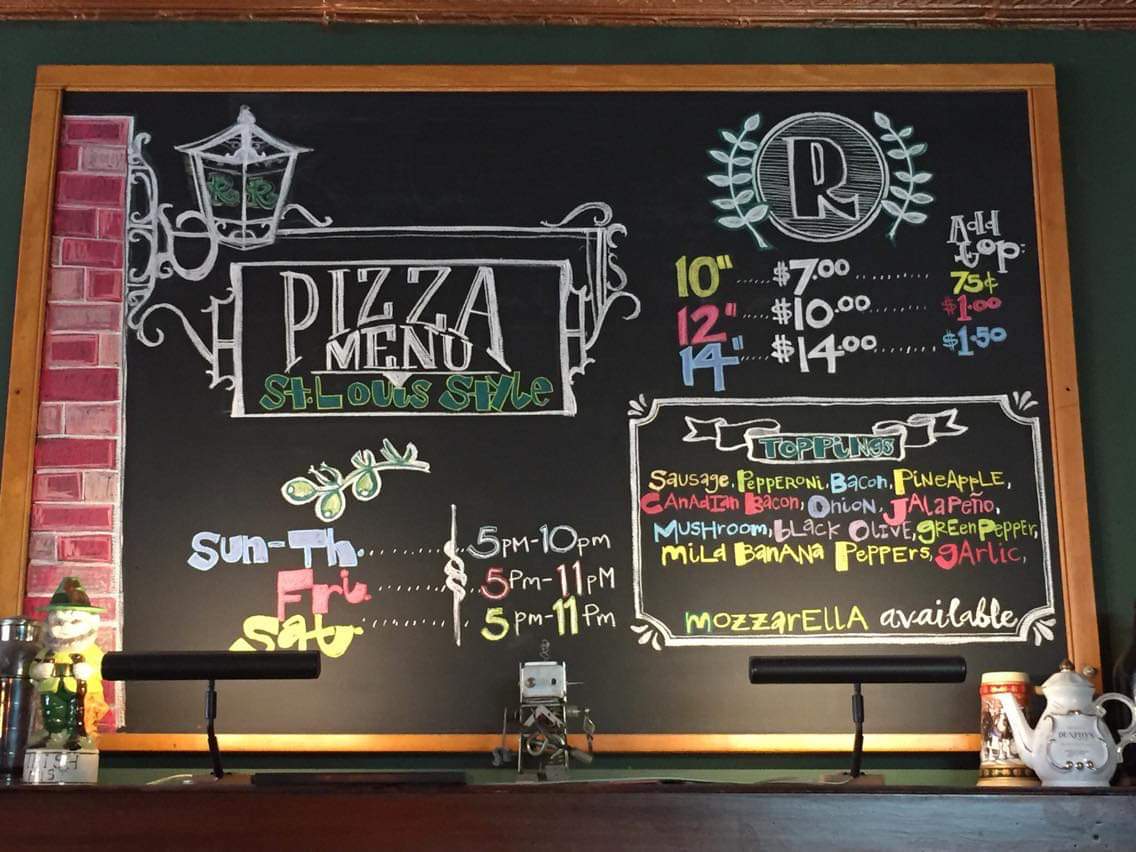 R R
PIZZA
MENU
St. Louis Style
R
Add
top:
10" ..... $7.00 ......... 75¢
12" ..... $10.00 ....... $1.00
14" ..... $14.00 ....... $1.50
TOPPINGS
Sausage, Pepperoni, Bacon, PineApple,
Canadian Bacon, Onion, Jalapeño,
Mushroom, black Olive, green Pepper,
Mild Banana Peppers, garlic,
mozzarella available
Sun-Th. ......... 5pm-10pm
Fri. ......... 5pm-11pm
Sat. ......... 5pm-11pm
DUNPHY'S